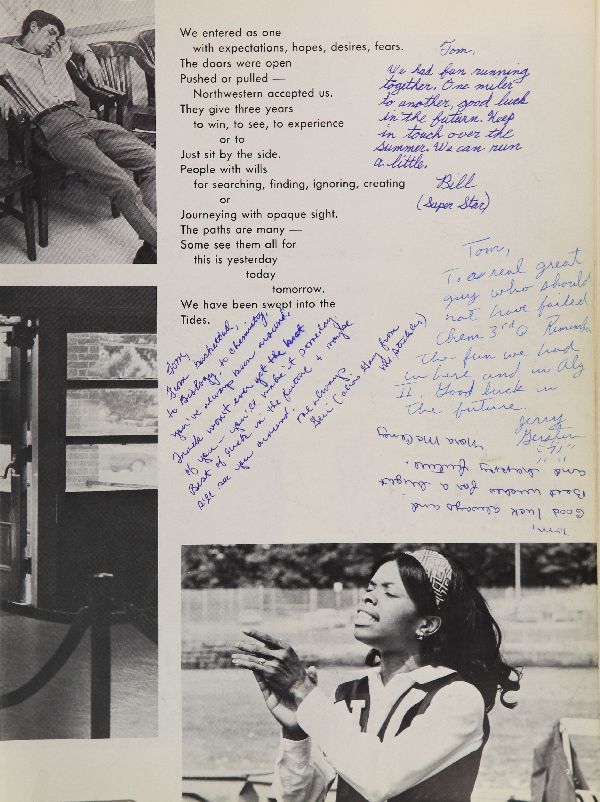 We entered as one
with expectations, hopes, desires, fears.
The doors were open
Pushed or pulled —
Northwestern accepted us.
They give three years
to win, to see, to experience
or to
Just sit by the side.
People with wills
for searching, finding, ignoring, creating
or
Journeying with opaque sight.
The paths are many —
Some see them all for
this is yesterday
today
tomorrow.
We have been swept into the
Tides.
Tom,
We had fun running
together. One miler
to another, good luck
in the future. Keep
in touch over the
summer. We can run
a little.
Bill
(Super Star)
Tom,
To a real great
guy who should
not have failed
Chem 3rd Q. Remember
the fun we had
in here and in Alg
II. Good luck in
the future.
Jerry
"71"
Tom,
From basketball,
to Biology, to chemistry,
you've always been around.
Track won't ever get the best
of you – you'll make it someday
Best of luck in the future & maybe
I'll see you around.
Tom,
Good luck always and
Best wishes for a bright
and happy future.